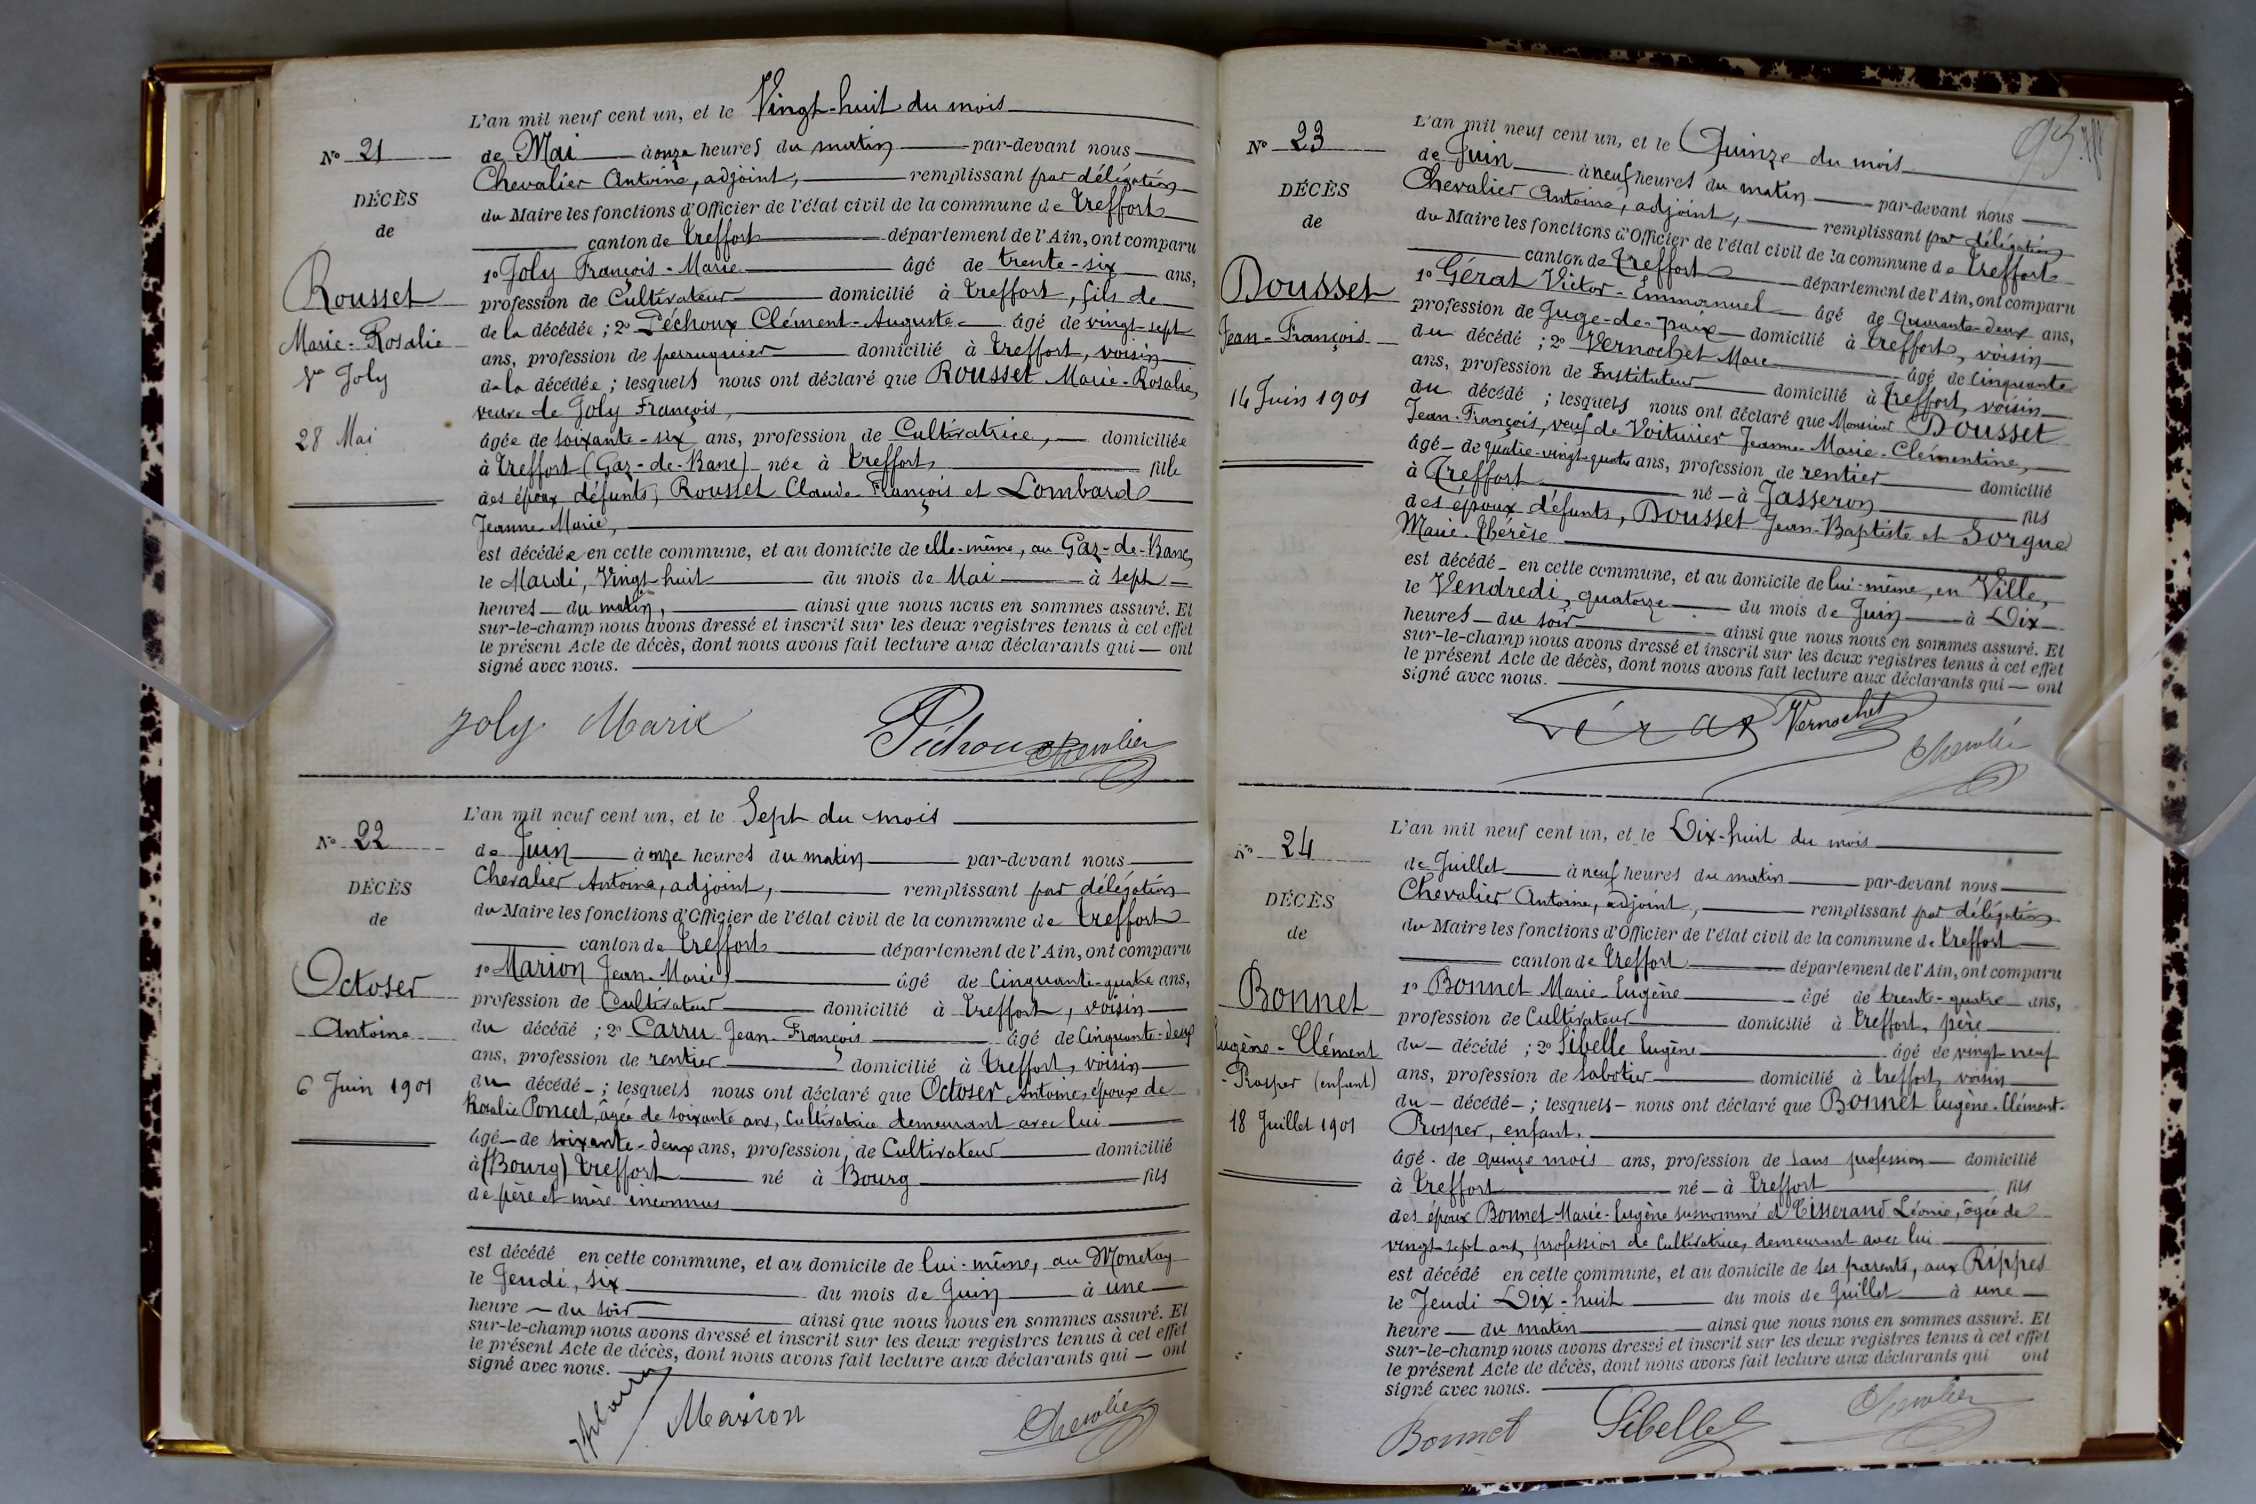 L'an mil neuf cent un, et le Vingt-huit du mois
No 21
de Mai à onze heures du matin par-devant nous
Chevalier Antoine, adjoint, remplissant par délégation
DÉCÈS
du Maire les fonctions d'Officier de l'état civil de la commune de Treffort
de
canton de Treffort département de l'Ain, ont comparu
1o Joly François-Marie âgé de trente-six ans,
Rousset
profession de Cultivateur domicilié à Treffort, fils de
Marie-Rosalie
de la décédée ; 2o Péchoux Clément-Auguste âgé de vingt-sept
ans, profession de perruquier domicilié à Treffort, voisin
Ve Joly
de la décédée ; lesquels nous ont déclaré que Rousset Marie-Rosalie,
veuve de Joly François,
28 Mai
âgée de soixante-six ans, profession de Cultivatrice, domiciliée
à Treffort (Gaz-de-Banc) née à Treffort, fille
des époux défunts, Rousset Claude-François et Lombard
Jeanne-Marie,
est décédée en cette commune, et au domicile de elle-même, au Gaz-de-Banc,
le Mardi, Vingt-huit du mois de Mai à sept
heures du matin, ainsi que nous nous en sommes assuré. Et
sur-le-champ nous avons dressé et inscrit sur les deux registres tenus à cet effet
le présent Acte de décès, dont nous avons fait lecture aux déclarants qui ont
signé avec nous.
Joly Marie Péchoux Chevalier
L'an mil neuf cent un, et le Sept du mois
No 22
de Juin à onze heures du matin par-devant nous
Chevalier Antoine, adjoint, remplissant par délégation
DÉCÈS
du Maire les fonctions d'Officier de l'état civil de la commune de Treffort
de
canton de Treffort département de l'Ain, ont comparu
1o Marion Jean-Marie, âgé de Cinquante-quatre ans,
Octoser
profession de Cultivateur domicilié à Treffort, voisin
Antoine
du décédé ; 2o Carru Jean-François âgé de Cinquante-deux
ans, profession de rentier domicilié à Treffort, voisin
6 Juin 1901
du décédé ; lesquels nous ont déclaré que Octoser Antoine, époux de
Rosalie Poncet, âgée de soixante ans, Cultivatrice demeurant avec lui
âgé de soixante-deux ans, profession de Cultivateur domicilié
à (Bourg) Treffort né à Bourg fils
de père et mère inconnus
est décédé en cette commune, et au domicile de lui-même, au Monetay
le Jeudi, six du mois de Juin à une
heure du soir ainsi que nous nous en sommes assuré. Et
sur-le-champ nous avons dressé et inscrit sur les deux registres tenus à cet effet
le présent Acte de décès, dont nous avons fait lecture aux déclarants qui ont
signé avec nous.
Marion Chevalier
L'an mil neuf cent un, et le Quinze du mois
No 23
de Juin à neuf heures du matin par-devant nous
Chevalier Antoine, adjoint, remplissant par délégation
DÉCÈS
du Maire les fonctions d'Officier de l'état civil de la commune de Treffort
de
canton de Treffort département de l'Ain, ont comparu
1o Gérat Victor-Emmanuel âgé de Quarante-deux ans,
Dousset
profession de Juge-de-paix domicilié à Treffort, voisin
Jean-François
du décédé ; 2o Vernochet Marc âgé de Cinquante
ans, profession de Instituteur domicilié à Treffort, voisin
14 Juin 1901
du décédé ; lesquels nous ont déclaré que Monsieur Dousset
Jean-François, veuf de Voiturier Jeanne-Marie-Clémentine,
âgé de quatre-vingt-quatre ans, profession de rentier domicilié
à Treffort né à Jasseron fils
des époux défunts, Dousset Jean-Baptiste et Sorgue
Marie-Thérèse
est décédé en cette commune, et au domicile de lui-même, en Ville,
le Vendredi, quatorze du mois de Juin à Dix
heures du soir ainsi que nous nous en sommes assuré. Et
sur-le-champ nous avons dressé et inscrit sur les deux registres tenus à cet effet
le présent Acte de décès, dont nous avons fait lecture aux déclarants qui ont
signé avec nous.
Gérat Vernochet Chevalier
L'an mil neuf cent un, et le Dix-huit du mois
No 24
de Juillet à neuf heures du matin par-devant nous
Chevalier Antoine, adjoint, remplissant par délégation
DÉCÈS
du Maire les fonctions d'Officier de l'état civil de la commune de Treffort
de
canton de Treffort département de l'Ain, ont comparu
1o Bonnet Marie-Eugène âgé de trente-quatre ans,
Bonnet
profession de Cultivateur domicilié à Treffort, père
Eugène-Clément
du décédé ; 2o Sibelle Eugène âgé de vingt-neuf
-Prosper (enfant)
ans, profession de Sabotier domicilié à Treffort, voisin
du décédé ; lesquels nous ont déclaré que Bonnet Eugène-Clément-
18 Juillet 1901
Prosper, enfant.
âgé de quinze mois ans, profession de sans profession domicilié
à Treffort né à Treffort fils
des époux Bonnet Marie-Eugène susnommé et Tisserand Léonie, âgée de
vingt-sept ans, profession de Cultivatrice, demeurant avec lui
est décédé en cette commune, et au domicile de ses parents, aux Rippes
le Jeudi Dix-huit du mois de Juillet à une
heure du matin ainsi que nous nous en sommes assuré. Et
sur-le-champ nous avons dressé et inscrit sur les deux registres tenus à cet effet
le présent Acte de décès, dont nous avons fait lecture aux déclarants qui ont
signé avec nous.
Bonnet Sibelle Chevalier